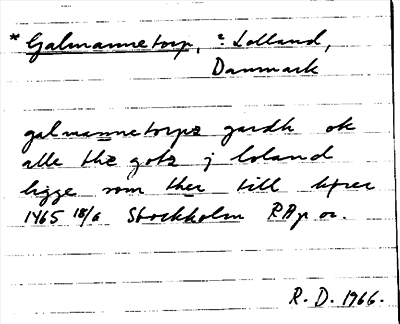 * Galmannetorp, ? Lolland,
Danmark
galmannetorpz gardh ok
alle thz gotz j loland
ligge som ther till hører
1465 18/6 Stockholm RAp or.
R. D. 1966.